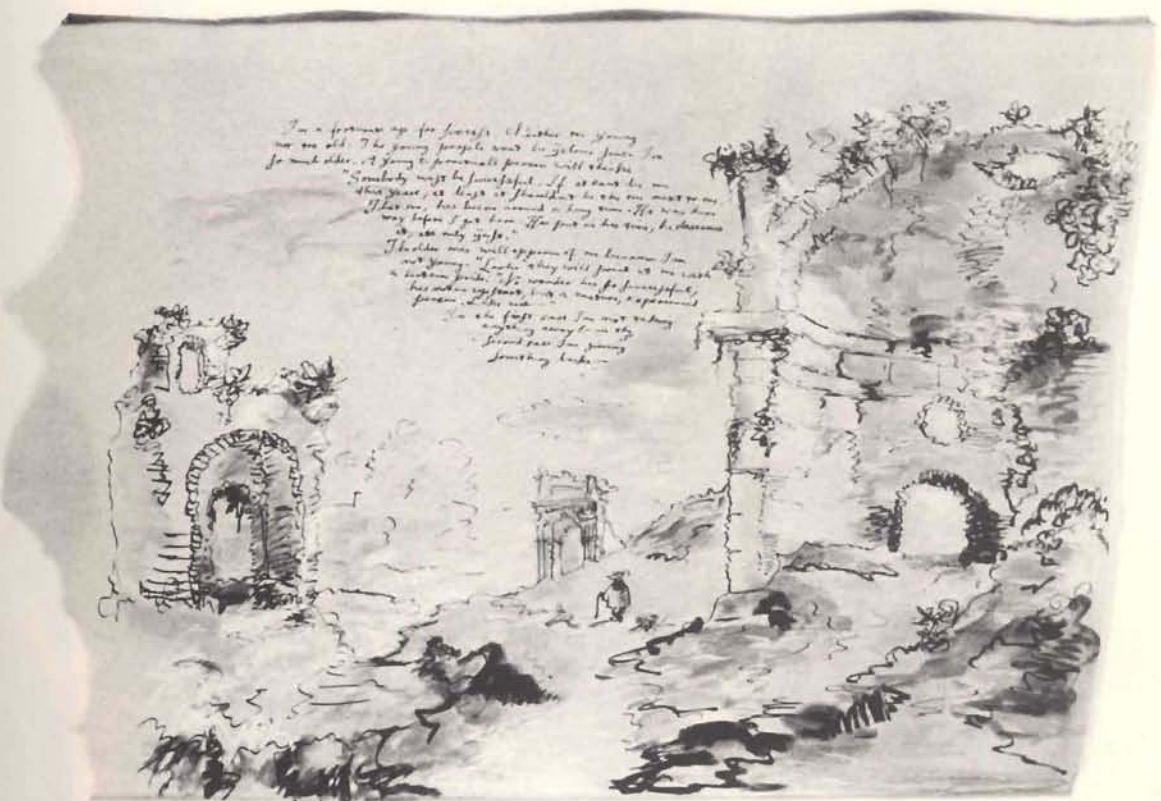 I'm a fortunate age for success. Neither too young
nor too old. The young people won't be jealous since I'm
so much older. A young & personable person will
"Somebody must be successful. If it can't be me
this year, at least it shouldn't be the one next to me.
That one, has been around a long time. He was there
way before I got here. He's put in his time, he deserves
it, it's only just."
The older ones will approve of me because I'm
not young. "Look" they will point at me with
a certain pride. "No wonder he's so successful,
he's not an upstart, but a mature, experienced
person. Like me."
In the first case I'm not taking
anything away from the
second case I'm giving
something back.